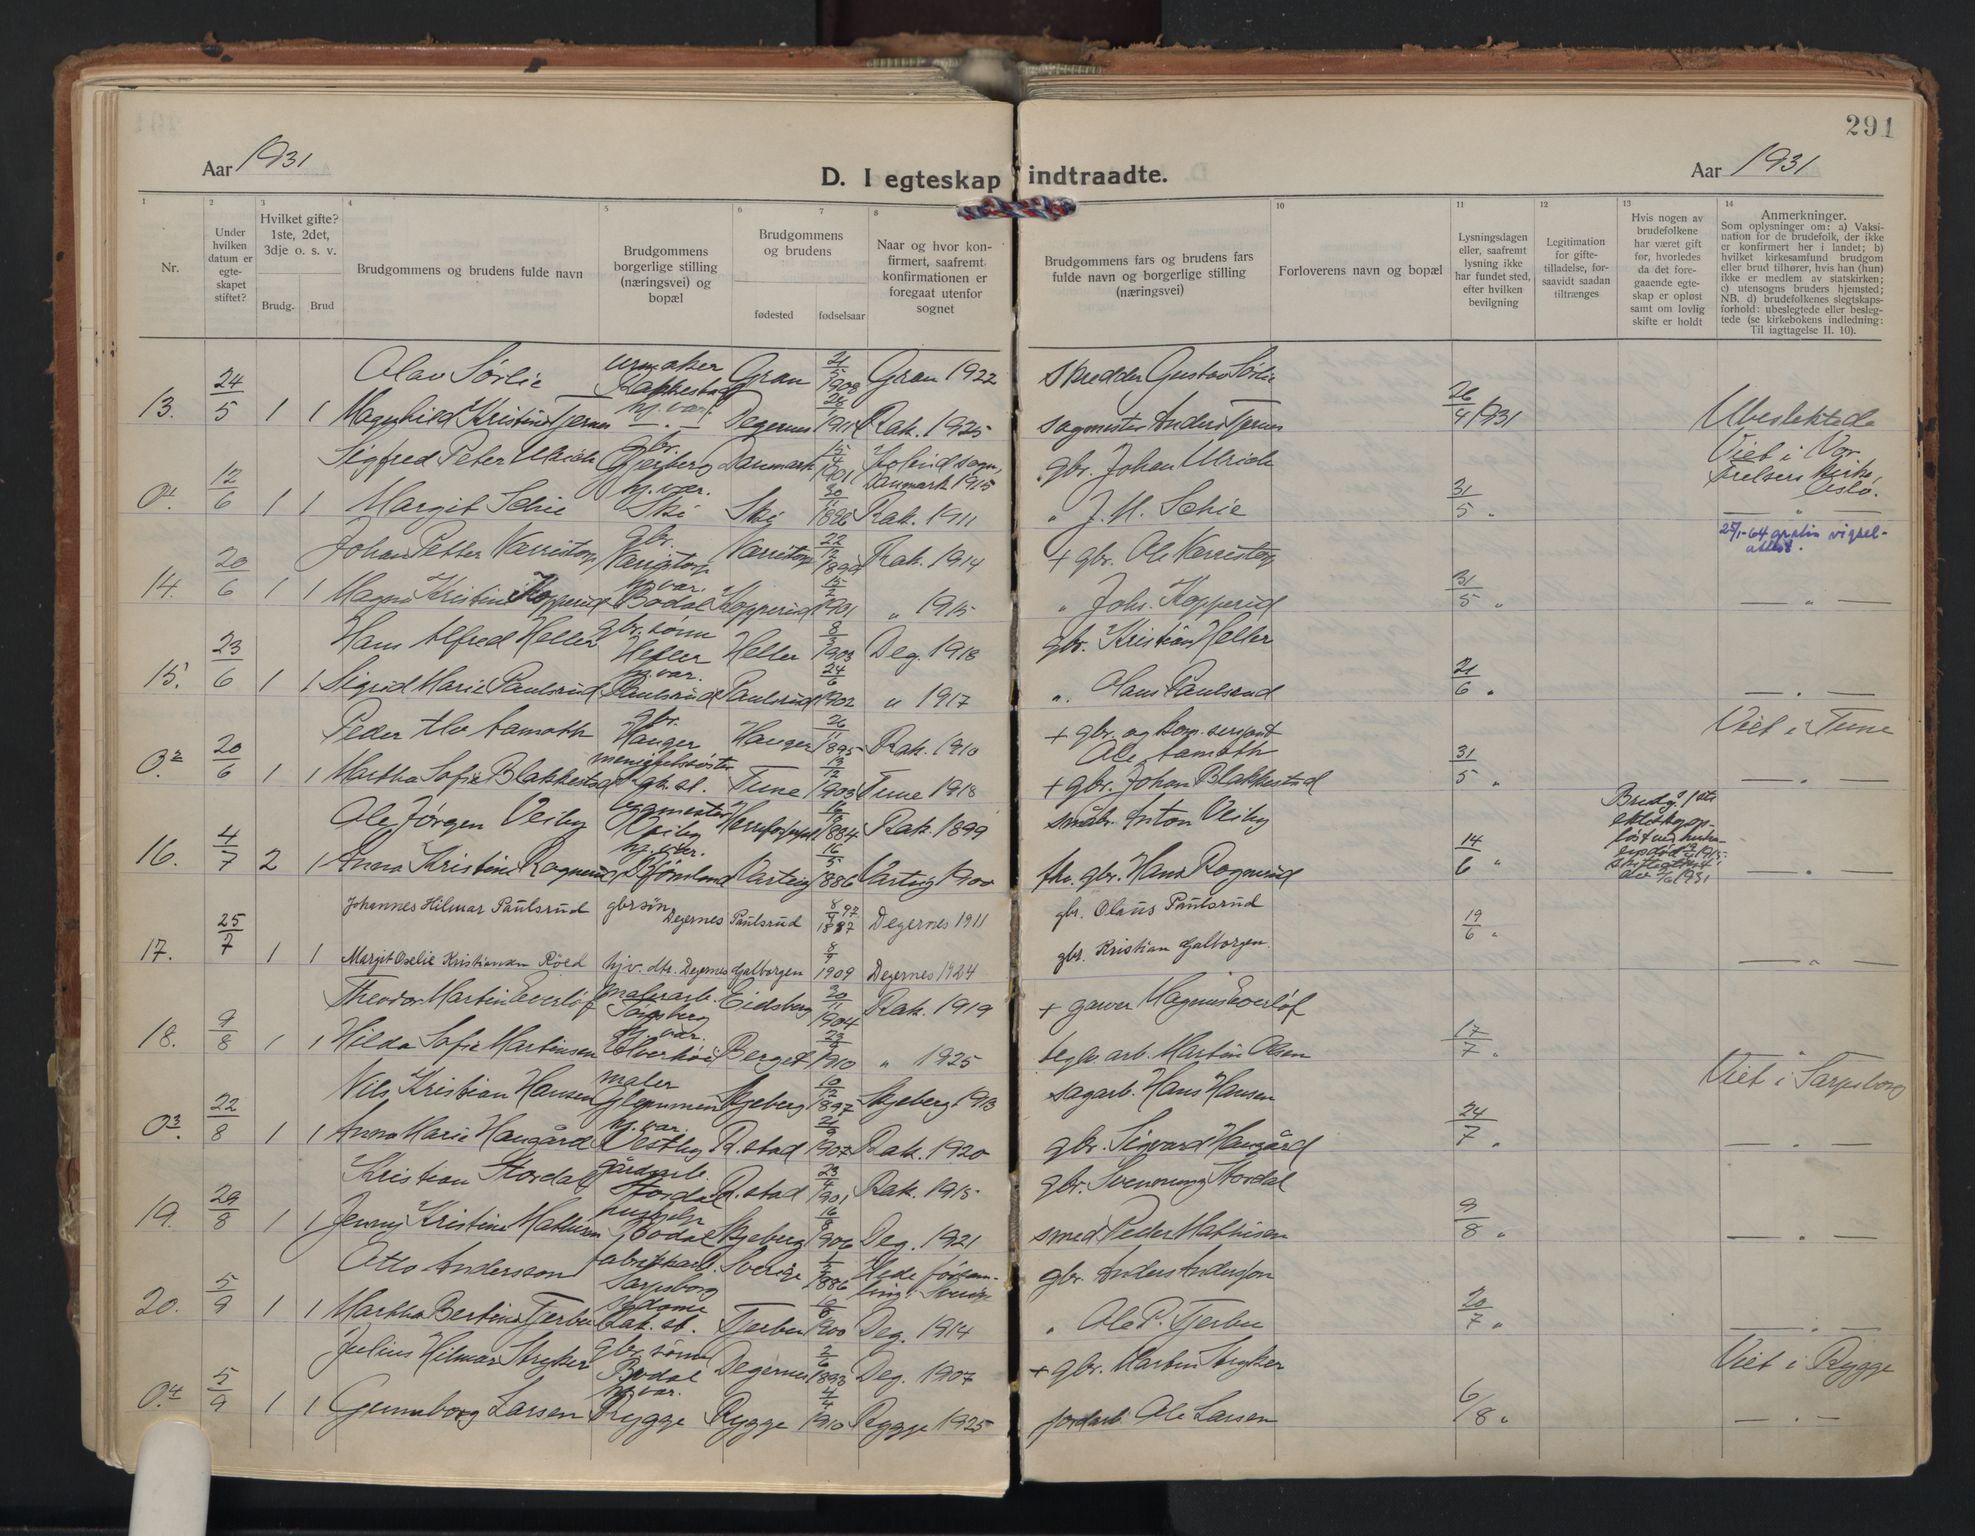 291
Aar 1931
D. I egteskap indtraadte.
Aar 1931
1
Nr.
2
Under hvilken datum er egteskapet stiftet?
3
Hvilket gifte? 1ste, 2det, 3dje o. s. v.
Brudg. Brud
4
Brudgommens og brudens fulde navn
5
Brudgommens borgerlige stilling (næringsvei) og bopæl
6 7
Brudgommens og brudens
fødested fødselsaar
8
Naar og hvor konfirmert, saafremt konfirmationen er foregaat utenfor sognet
Brudgommens fars og brudens fars fulde navn og borgerlige stilling (næringsvei)
10
Forloverens navn og bopæl
11
Lysningsdagen eller, saafremt lysning ikke har fundet sted, efter hvilken bevilgning
12
Legitimation for giftetilladelse, forsaavidt saadan tiltrænges
13
Hvis nogen av brudefolkene har været gift før, hvorledes da det foregaaende egteskap er opløst samt om lovlig skifte er holdt
14
Anmerkninger.
Som oplysninger om: a) Vaksination for de brudefolk, der ikke er konfirmert her i landet; b) hvilket kirkesamfund brudgom eller brud tilhører, hvis han (hun) ikke er medlem av statskirken; c) utensogns bruders hjemsted; NB. d) brudefolkenes slegtskapsforhold: ubeslegtede eller beslegtede (se kirkebokens indledning: Til iagttagelse II. 10).
Olav Sørlie urmaker Rakkestad Gran 21/5 1908 Gran 1922 skredder Gustav Sørlie
13. 24/5 1 1 Magnhild Kristine Tjernes hj.vær. Degernes Rak. 1925 sagmester Anders Tjernes 26/4 1931 Ubeslektede
Sigfred Peter Ulrich gbr. Danmark 15/4 1901 sogn, Danmark 1915 gbr. Johan Ulrich Viet i Vor Frelsers kirke, Oslo.
0.1 12/6 1 1 Margit Schie hj.vær. Ski Ski 1896 Rak. 1911 " J. M. Schie 31/5 "
Johan Petter Værristorp gbr. Værristorp Værristorp 22/12 Rak. 1914 + gbr. Ole Værristorp 25/1-64 gratis vigselattest.
14. 20/6 1 1 Magna Kristine Kopperud hj.vær. Bodal Kopperud 1901 " 1915 " Johs. Kopperud 31/5 " — " —
Hans Alfred Heller gbr. sønn Heller Heller 8/3 1903 Deg. 1918 gbr. Kristian Heller
15. 23/6 1 1 Sigrid Marie Paulsrud hj.vær. Paulsrud Paulsrud 24/6 1902 " 1917 " Olaus Paulsrud 21/6 " — " —
Peder Aamoth gbr. Hauger Hauger 26/11 1895 Rak. 1910 + gbr. og kom. sersjant Ole Aamoth Viet i Tune
0.2 20/6 1 1 Martha Sofie Blakkestad menighetssøster Rak. st. Tune 1903 Tune 1918 + gbr. Johan Blakkestad 31/5 " — " —
Ole Jørgen Veiby bygmester Veiby 1884 Rak. 1899 småbr. Anton Veiby Brudg. 1ste ekteskap opløst ved hustruens død
16. 4/7 2 1 Anna Kristine Rognerud hj.vær. Bjørnland Varteig 16/5 1886 Varteig 1900 fhv. gbr. Hans Rognerud 14/6 " 1931 — " —
Johannes Hilmar Paulsrud gbr søn Degernes Paulsrud 1897 Degernes 1911 gbr. Olaus Paulsrud 19/6 "
17. 25/7 1 1 Margit Oselie Kristiansen Röed hjv. dtr. Degernes Galborgen 1909 Degernes 1924 gbr. Kristian Galborgen. — " —
Theodor Martin Everløf malerarb. Eidsberg 20/11 1904 Rak. 1919 + garver Magnus Everløf
18. 9/8 1 1 Hilda Sofie Martinsen hj.vær. Berget 1910 " 1925 arb. Martin Olsen 17/7 " "
Nils Kristian Hansen maler Glemmen Skjeberg 10/12 1897 Skjeberg 1913 sagarb. Hans Hansen Viet i Sarpsborg
0.3 22/8 1 1 Anna Marie Haugård hj.vær. Vestby R.stad 1907 Rak. 1920 gbr. Sigvard Haugård 24/7 " — " —
Kristian Stordal gårdarb. Stordal R.stad 23/4 1901 Rak. 1915 gbr. Svennung Stordal
19. 29/8 1 1 Jenny Kristine Mathisen hushjelp Bodal Skjeberg 16/8 1906 Deg. 1921 smed Peder Mathisen 9/8 " — " —
Otto Andersson fabrikkarb. Sarpsborg Sverige 1886 gbr. Anders Andersson
20. 5/9 1 1 Martha Bertine Tjerbu Rak. st. Tjerbu 1900 Deg. 1914 " Ole P. Tjerbu 20/7 " — " —
Julius Hilmar Stryker gbr. sønn Bodal Degernes 2/6 1893 Deg. 1907 + gbr. Martin Stryker Viet i Rygge
0.4 5/9 1 1 Gunnborg Larsen hj.vær. Rygge Rygge 4/4 1910 Rygge 1925 jordarb. Ole Larsen 6/8 " — " —